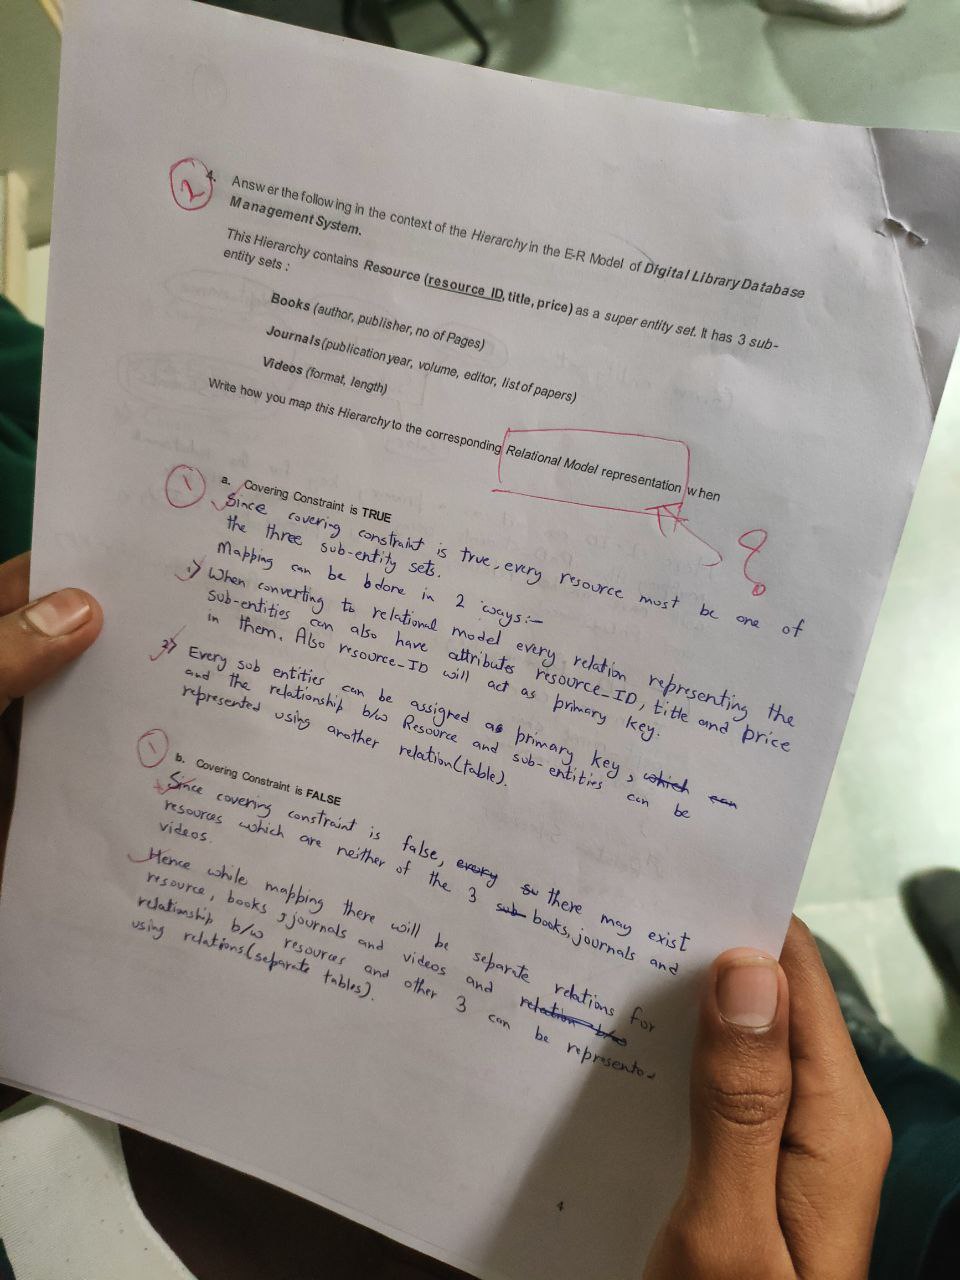 2
4. Answer the following in the context of the Hierarchy in the E-R Model of Digital Library Database
Management System.
This Hierarchy contains Resource (resource_ID, title, price) as a super entity set. It has 3 sub-
entity sets :
Books (author, publisher, no of Pages)
Journals (publication year, volume, editor, list of papers)
Videos (format, length)
Write how you map this Hierarchy to the corresponding Relational Model representation when
?
1
a. Covering Constraint is TRUE
Since covering constraint is true, every resource must be one of
the three sub-entity sets.
Mapping can be bdone in 2 ways:-
1) When converting to relational model every relation representing the
sub-entities can also have attributes resource-ID, title and price
in them. Also resource-ID will act as primary key.
2) Every sub entities can be assigned as primary key, which can
and the relationship b/w Resource and sub-entities can be
represented using another relation(table).
1
b. Covering Constraint is FALSE
Since covering constraint is false, every su there may exist
resources which are neither of the 3 sub books, journals and
videos.
Hence while mapping there will be separate relations for
resource, books, journals and videos and relation b/w
relationship b/w resources and other 3 can be represented
using relations(separate tables).
4